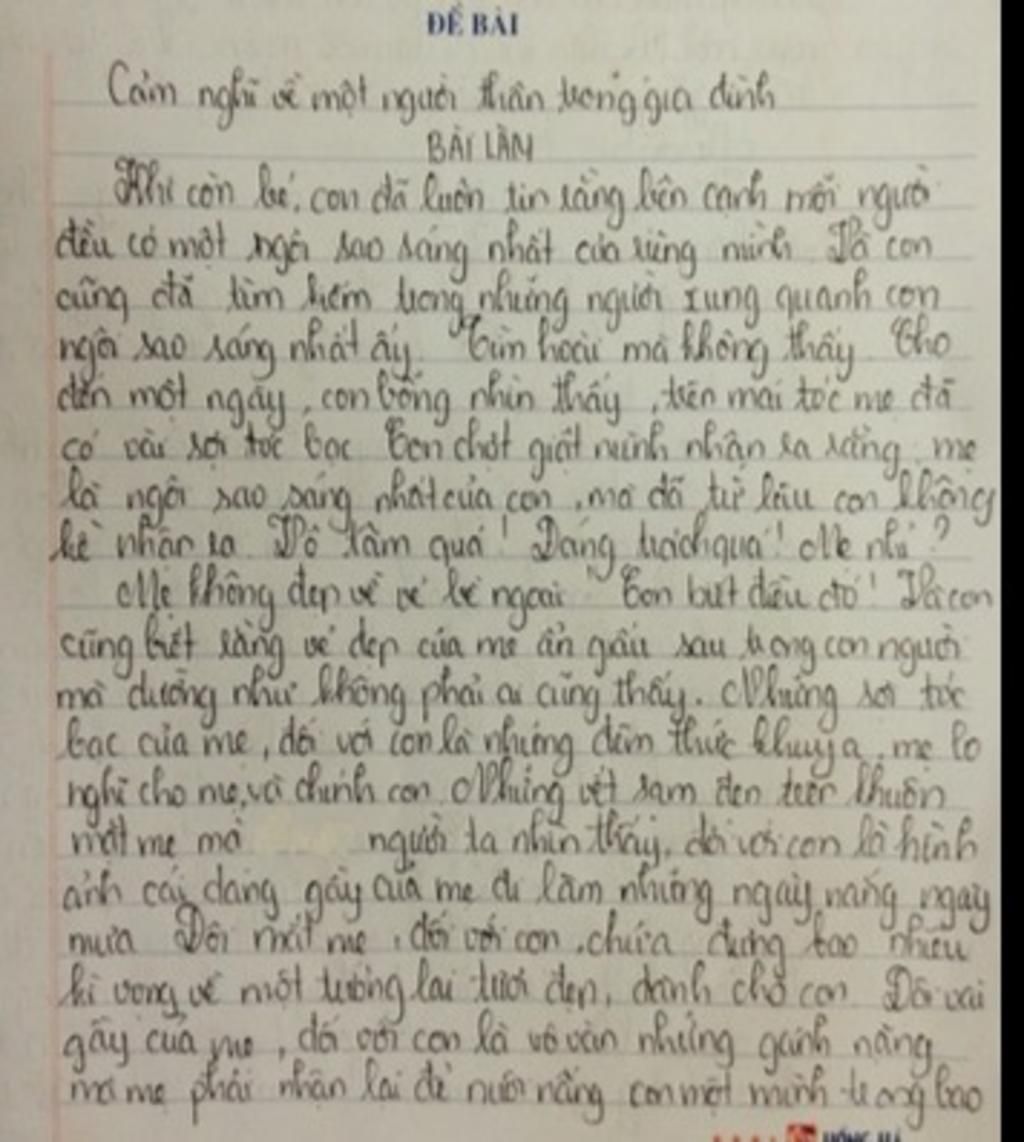 ĐỀ BÀI
Cảm nghĩ về một người thân trong gia đình
BÀI LÀM
Khi còn bé, con đã luôn tin rằng bên cạnh mỗi người
đều có một ngôi sao sáng nhất của riêng mình. Và con
cũng đã tìm kiếm trong những người xung quanh con
ngôi sao sáng nhất ấy. Tìm hoài mà không thấy. Cho
đến một ngày, con bỗng nhìn thấy, trên mái tóc mẹ đã
có vài sợi tóc bạc. Con chợt giật mình nhận ra rằng, mẹ
là ngôi sao sáng nhất của con, mà đã từ lâu con không
hề nhận ra. Vô tâm quá! Đáng trách quá! Mẹ nhỉ?
Mẹ không đẹp về vẻ bề ngoài. Con biết điều đó! Và con
cũng biết rằng vẻ đẹp của mẹ ẩn giấu sau trong con người
mà dường như không phải ai cũng thấy. Những sợi tóc
bạc của mẹ, đối với con là những đêm thức khuya, mẹ lo
nghĩ cho mẹ, và chính con. Những vết sạm đen trên khuôn
mặt mẹ mà người ta nhìn thấy, đối với con là hình
ảnh cái dáng gầy của mẹ đi làm những ngày nắng ngày
mưa. Đôi mắt mẹ, đối với con, chứa đựng bao nhiêu
kì vọng về một tương lai tươi đẹp, dành cho con. Đôi vai
gầy của mẹ, đối với con là vô vàn những gánh nặng
mà mẹ phải nhận lại để nuôi nấng con một mình trong bao
HỒNG HÀ